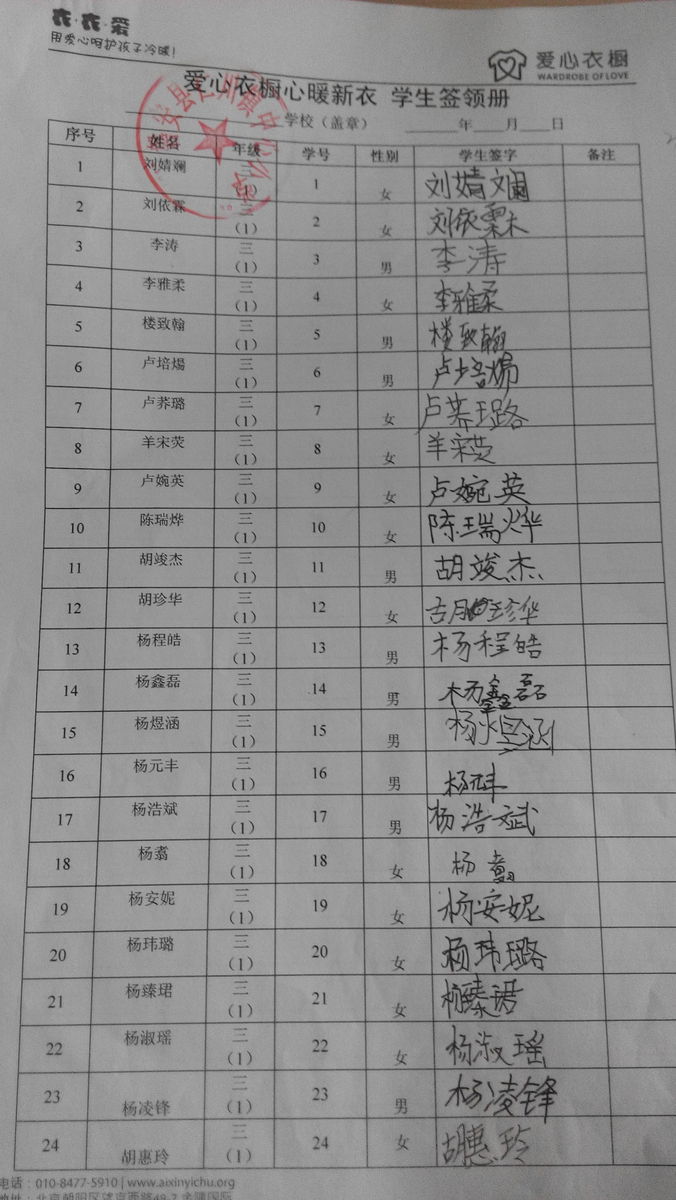 衣·衣·爱
用爱心呵护孩子冷暖!
爱心衣橱
WARDROBE OF LOVE
爱心衣橱心暖新衣 学生签领册
学校(盖章) 年 月 日
序号 姓名 年级 学号 性别 学生签字 备注
1 刘婧斓 三(1) 1 女 刘婧斓
2 刘依霖 三(1) 2 女 刘依霖
3 李涛 三(1) 3 男 李涛
4 李雅柔 三(1) 4 女 李雅柔
5 楼致翰 三(1) 5 男 楼致翰
6 卢培煬 三(1) 6 男 卢培煬
7 卢荞璐 三(1) 7 女 卢荞璐
8 羊宋荧 三(1) 8 女 羊宋荧
9 卢婉英 三(1) 9 女 卢婉英
10 陈瑞烨 三(1) 10 女 陈瑞烨
11 胡竣杰 三(1) 11 男 胡竣杰
12 胡珍华 三(1) 12 女 胡珍华
13 杨程皓 三(1) 13 男 杨程皓
14 杨鑫磊 三(1) 14 男 杨鑫磊
15 杨煜涵 三(1) 15 男 杨煜涵
16 杨元丰 三(1) 16 男 杨元丰
17 杨浩斌 三(1) 17 男 杨浩斌
18 杨翥 三(1) 18 女 杨翥
19 杨安妮 三(1) 19 女 杨安妮
20 杨玮璐 三(1) 20 女 杨玮璐
21 杨臻珺 三(1) 21 女 杨臻珺
22 杨淑瑶 三(1) 22 女 杨淑瑶
23 杨凌锋 三(1) 23 男 杨凌锋
24 胡惠玲 三(1) 24 女 胡惠玲
电话:010-8477-5910 | www.aixinyichu.org